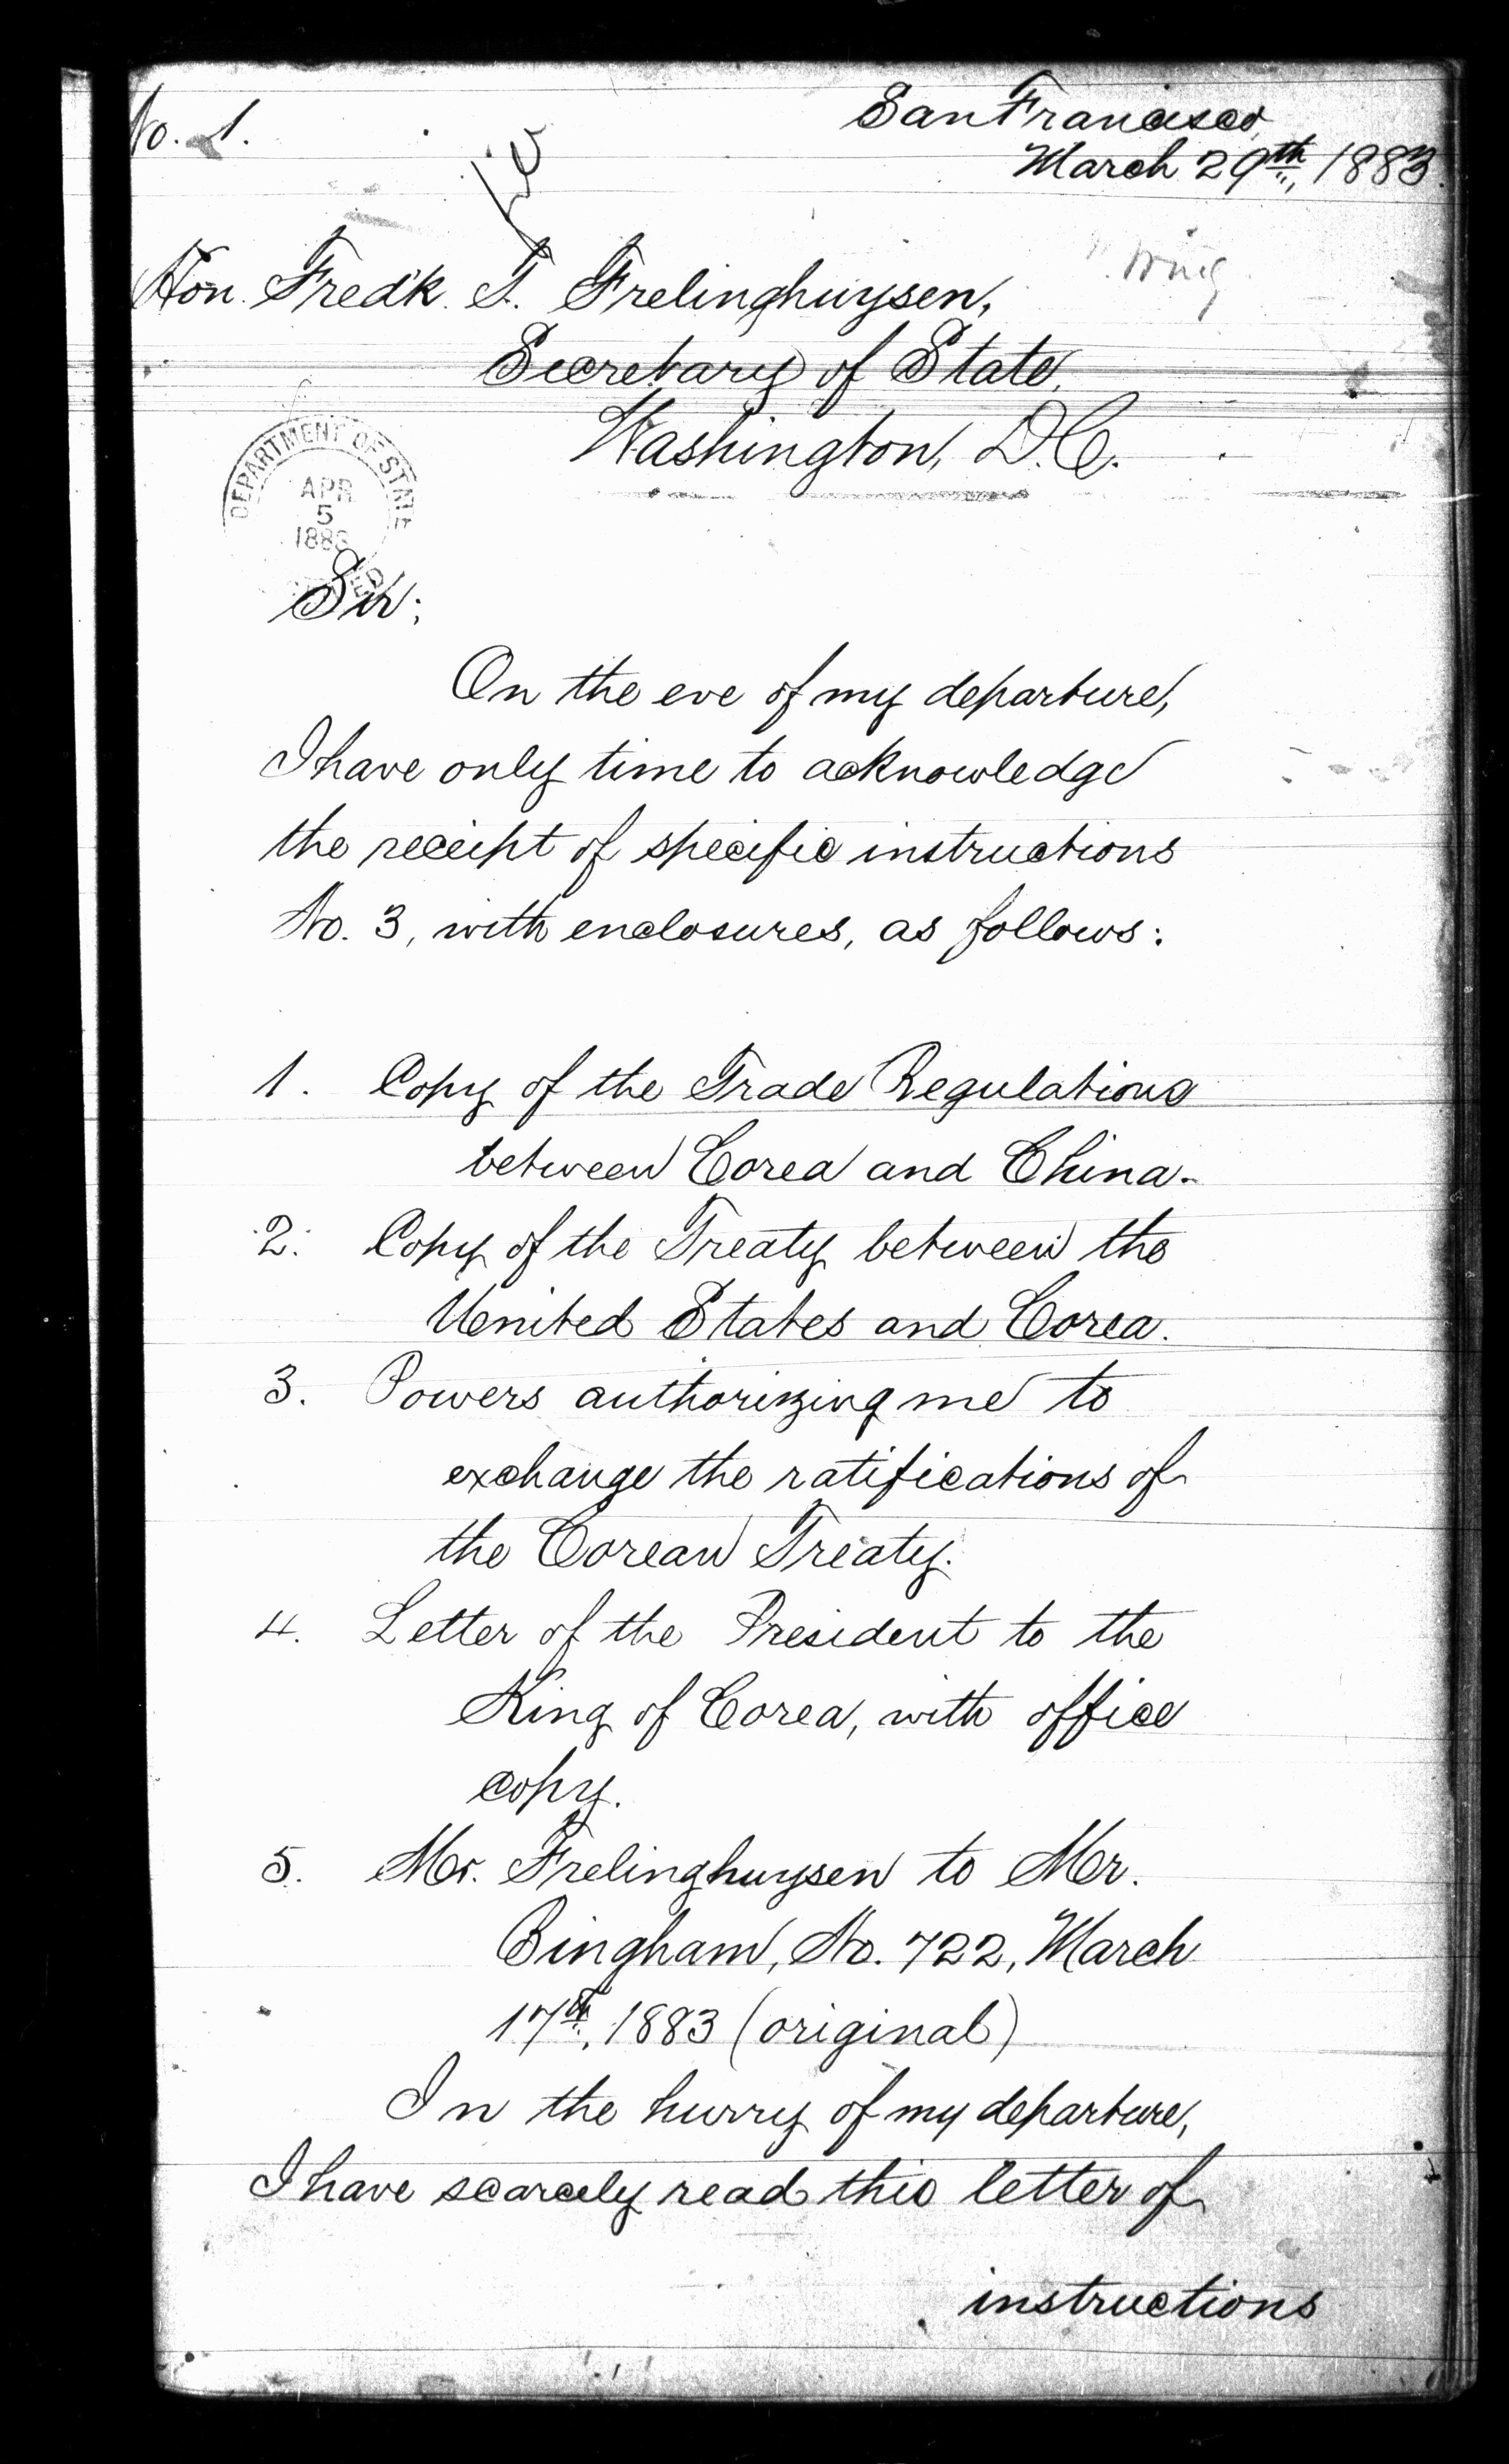 No. 1.
San Francisco,
March 29th, 1883.
Hon. Fredk. T. Frelinghuysen,
Secretary of State,
Washington, D.C.
DEPARTMENT OF STATE
APR
5
1883
Sir:
On the eve of my departure,
I have only time to acknowledge
the receipt of specific instructions
No. 3, with enclosures, as follows:
1. Copy of the Trade Regulations
between Corea and China.
2. Copy of the Treaty between the
United States and Corea.
3. Powers authorizing me to
exchange the ratifications of
the Corean Treaty.
4. Letter of the President to the
King of Corea, with office
copy.
5. Mr. Frelinghuysen to Mr.
Bingham, No. 722, March
17th, 1883 (original)
In the hurry of my departure,
I have scarcely read this letter of
instructions